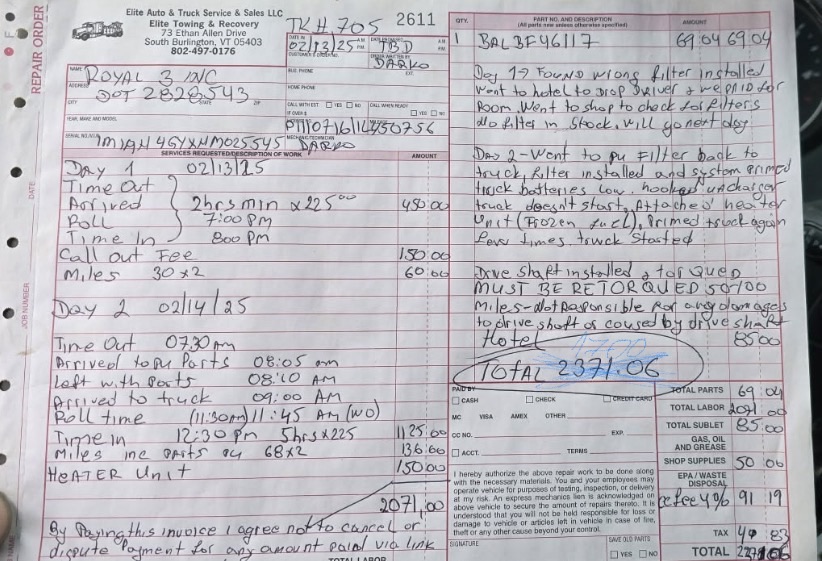 REPAIR ORDER
DATE
JOB NUMBER
Elite Auto & Truck Service & Sales LLC
Elite Towing & Recovery
73 Ethan Allen Drive
South Burlington, VT 05403
802-497-0176
TRH 705 2611
02/13/25 TBD
DARKO
NAME ROYAL 3 INC
ADDRESS DOT 2828543
CITY STATE
BUS. PHONE
HOME PHONE
CALL WITH EST. YES NO
CALL WHEN READY
YES NO
IF OVER $
YEAR, MAKE AND MODEL
SERIAL NO./V.I.N.
MECHANIC/TECHNICIAN
DARKO
SERVICES REQUESTED/DESCRIPTION OF WORK AMOUNT
DAY 1 02/13/25
Time Out
Arrived 2hrs min x225.00 450.00
Roll 7:00 pm
Time In 800 pm
Call out Fee 150.00
Miles 30x2 60.00
DAY 2 02/14/25
Time Out 07:30 am
Arrived to pu Parts 08:05 am
Left with parts 08:10 AM
Arrived to truck 09:00 AM
Roll time (11:30am) 11:45 AM (WO)
Time In 12:30 pm 5hrs x 225 1125.00
Miles inc parts pu 68x2 136.00
HEATER Unit 150.00
2071.00
By Paying this invoice I agree not to cancel or
dispute Payment for any amount paid via link
TOTAL LABOR
QTY. PART NO. AND DESCRIPTION AMOUNT
(All parts new unless otherwise specified)
1 BALBF46117 69.04 69.04
Day 1-> Found wrong filter installed
Went to hotel to Drop Driver & we paid for
Room. Went to shop to check for filters
No filter in stock, will go next day
Day 2-Went to pu Filter back to
truck, filter installed and system primed
truck batteries low, hooked up charger
truck doesn't start. Attached heater
Unit (Frozen fuel), Primed truck again
few times, truck Started
Drive Shaft installed & torQued
MUST BE RETORQUED 50-100
Miles-Not Responsible for any damages
to drive shaft or caused by drive shaft
Hotel 85.00
TOTAL 2371.06
PAID BY
CASH CHECK CREDIT CARD
MC VISA AMEX OTHER
CC NO. EXP.
ACCT. TERMS
I hereby authorize the above repair work to be done along
with the necessary materials. You and your employees may
operate vehicle for purposes of testing, inspection, or delivery
at my risk. An express mechanics lien is acknowledged on
above vehicle to secure the amount of repairs thereto. It is
understood that you will not be held responsible for loss or
damage to vehicle or articles left in vehicle in case of fire,
theft or any other cause beyond your control.
SIGNATURE
SAVE OLD PARTS
YES NO
TOTAL PARTS 69 04
TOTAL LABOR 2071 00
TOTAL SUBLET 85.00
GAS, OIL
AND GREASE
SHOP SUPPLIES 50 00
EPA / WASTE
DISPOSAL
cc fee 4% 91 19
TAX 4 83
TOTAL